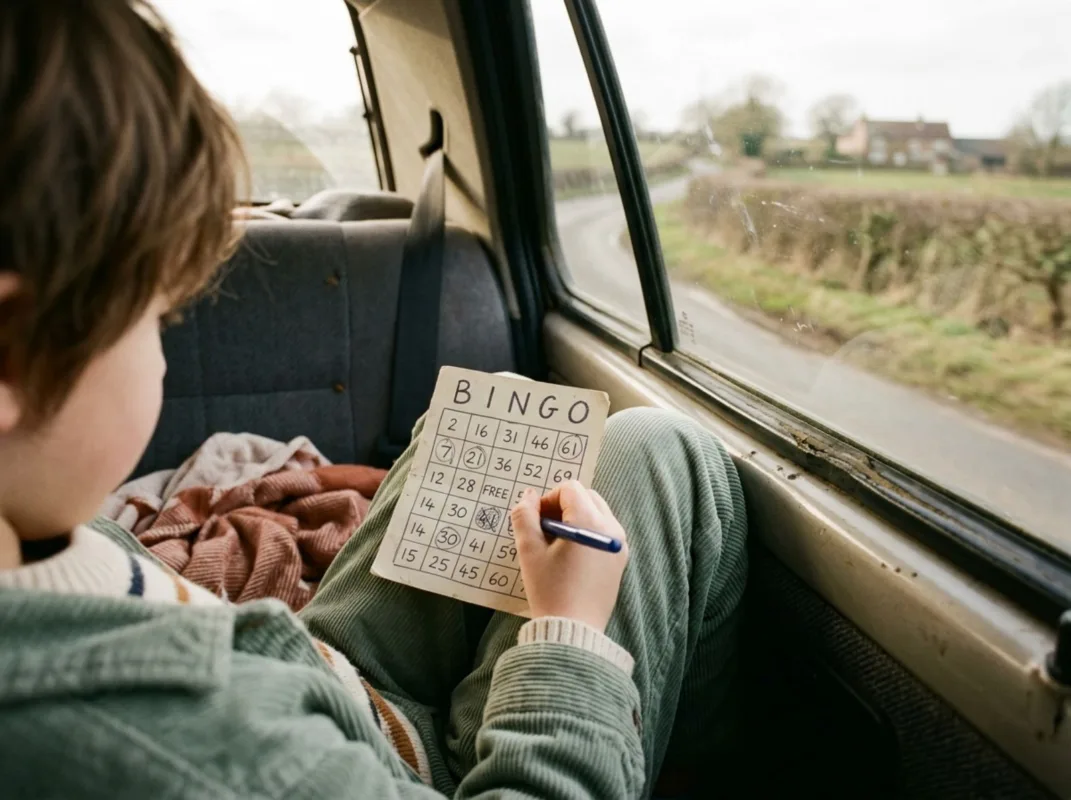 BINGO
2 16 31 46 61
7 21 36 52 69
12 28 FREE
14 30
14 30 41 59
15 25 45 60